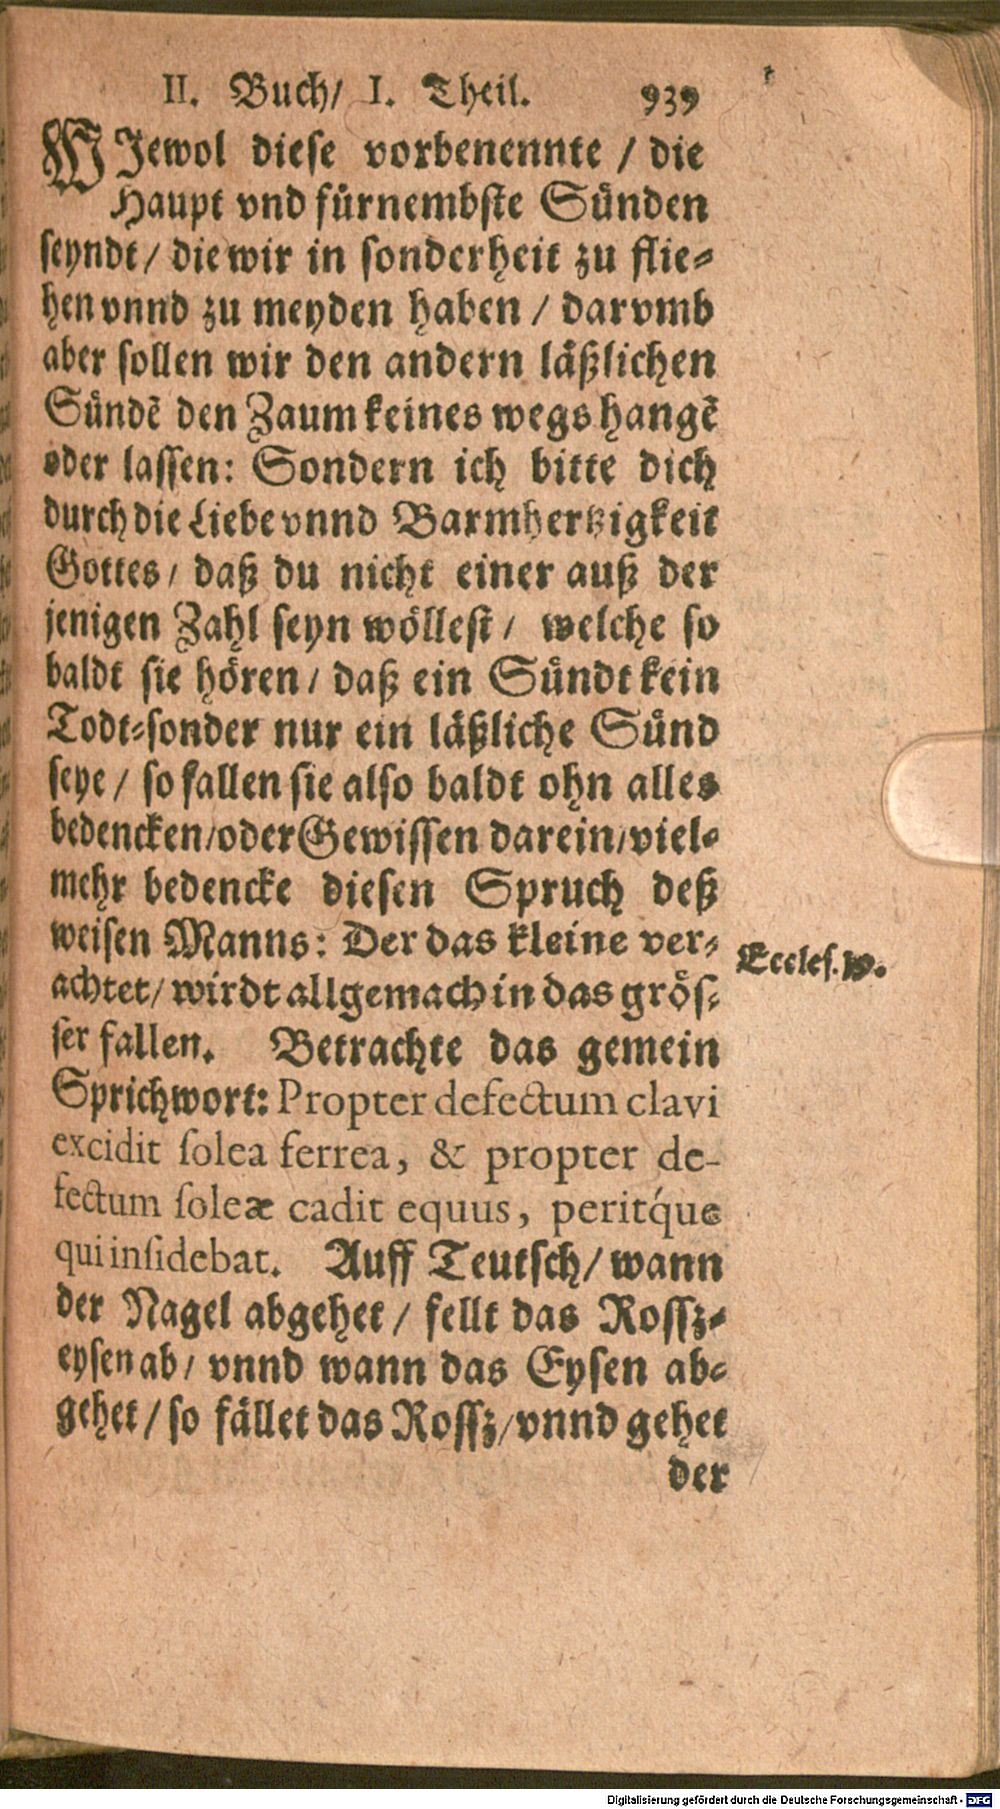 II. Buch/ I. Theil. 939
WJewol diese vorbenennte / die
Haupt vnd fürnembste Sünden
seyndt / die wir in sonderheit zu flie-
hen vnnd zu meyden haben / darvmb
aber sollen wir den andern läßlichen
Sündẽ den Zaum keines wegs hangẽ
oder lassen: Sondern ich bitte dich
durch die Liebe vnnd Barmhertzigkeit
Gottes / daß du nicht einer auß der
jenigen Zahl seyn wöllest / welche so
baldt sie hören / daß ein Sündt kein
Todt-sonder nur ein läßliche Sünd
seye / so fallen sie also baldt ohn alles
bedencken/oder Gewissen darein/viel-
mehr bedencke diesen Spruch deß
weisen Manns: Der das kleine ver-
achtet/ wirdt allgemach in das grös-
ser fallen. Betrachte das gemein
Sprichwort: Propter defectum clavi
excidit solea ferrea, & propter de-
fectum soleæ cadit equus, peritq́ue
qui insidebat. Auff Teutsch/ wann
der Nagel abgehet / fellt das Rossz-
eysen ab / vnnd wann das Eysen ab-
gehet / so fället das Rossz/vnnd gehet
der
Eccles.
Digitalisierung gefördert durch die Deutsche Forschungsgemeinschaft - DFG